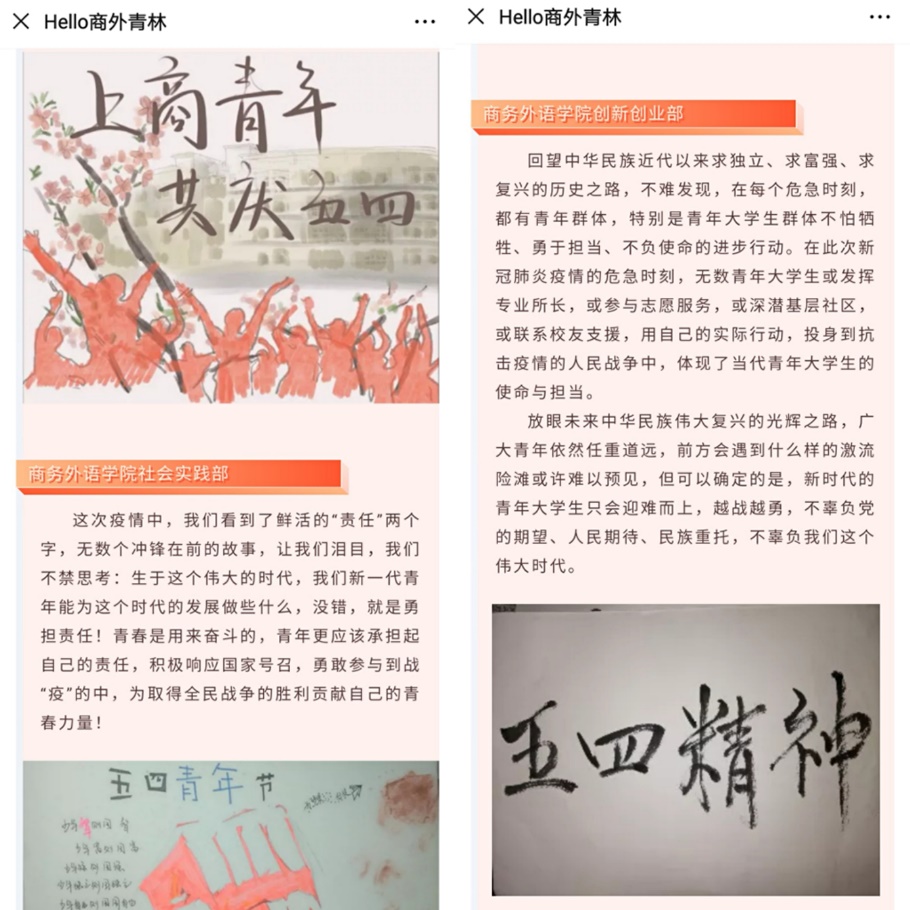 Hello商外青林
上商青年
共庆五四
商务外语学院社会实践部
这次疫情中，我们看到了鲜活的“责任”两个
字，无数个冲锋在前的故事，让我们泪目，我们
不禁思考：生于这个伟大的时代，我们新一代青
年能为这个时代的发展做些什么，没错，就是勇
担责任！青春是用来奋斗的，青年更应该承担起
自己的责任，积极响应国家号召，勇敢参与到战
“疫”的中，为取得全民战争的胜利贡献自己的青
春力量！
五四青年节
Hello商外青林
商务外语学院创新创业部
回望中华民族近代以来求独立、求富强、求
复兴的历史之路，不难发现，在每个危急时刻，
都有青年群体，特别是青年大学生群体不怕牺
牲、勇于担当、不负使命的进步行动。在此次新
冠肺炎疫情的危急时刻，无数青年大学生或发挥
专业所长，或参与志愿服务，或深潜基层社区，
或联系校友支援，用自己的实际行动，投身到抗
击疫情的人民战争中，体现了当代青年大学生的
使命与担当。
放眼未来中华民族伟大复兴的光辉之路，广
大青年依然任重道远，前方会遇到什么样的激流
险滩或许难以预见，但可以确定的是，新时代的
青年大学生只会迎难而上，越战越勇，不辜负党
的期望、人民期待、民族重托，不辜负我们这个
伟大时代。
五四精神